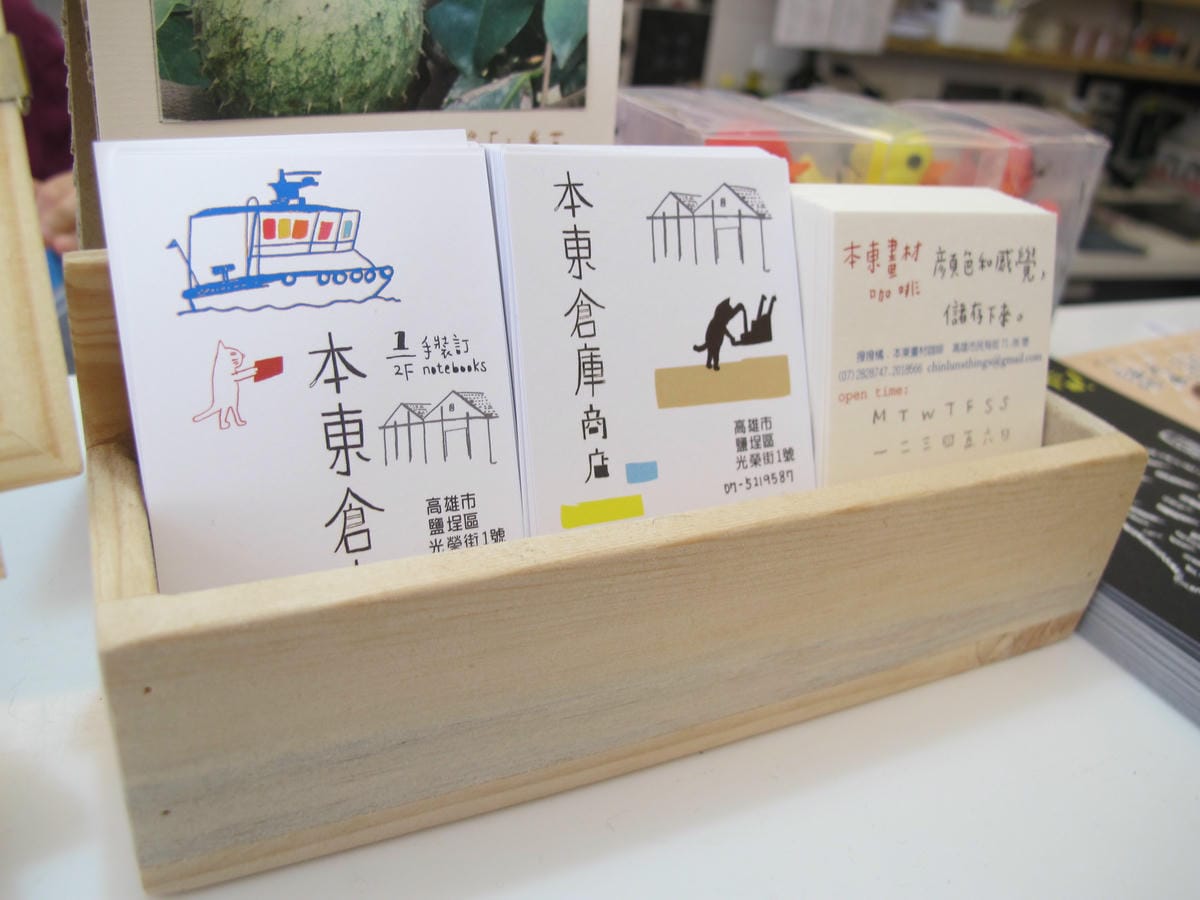 1
2F
手裝訂
notebooks
本東倉
高雄市
鹽埕區
光榮街1號
本東倉庫商店
高雄市
鹽埕區
光榮街1號
07-5219587
本東畫材
咖啡
顏色和感覺，
儲存下來。
(07)2828747．2018566 chinlunsthings@gmail.com
open time:
M T W T F S S
一 二 三 四 五 六 日